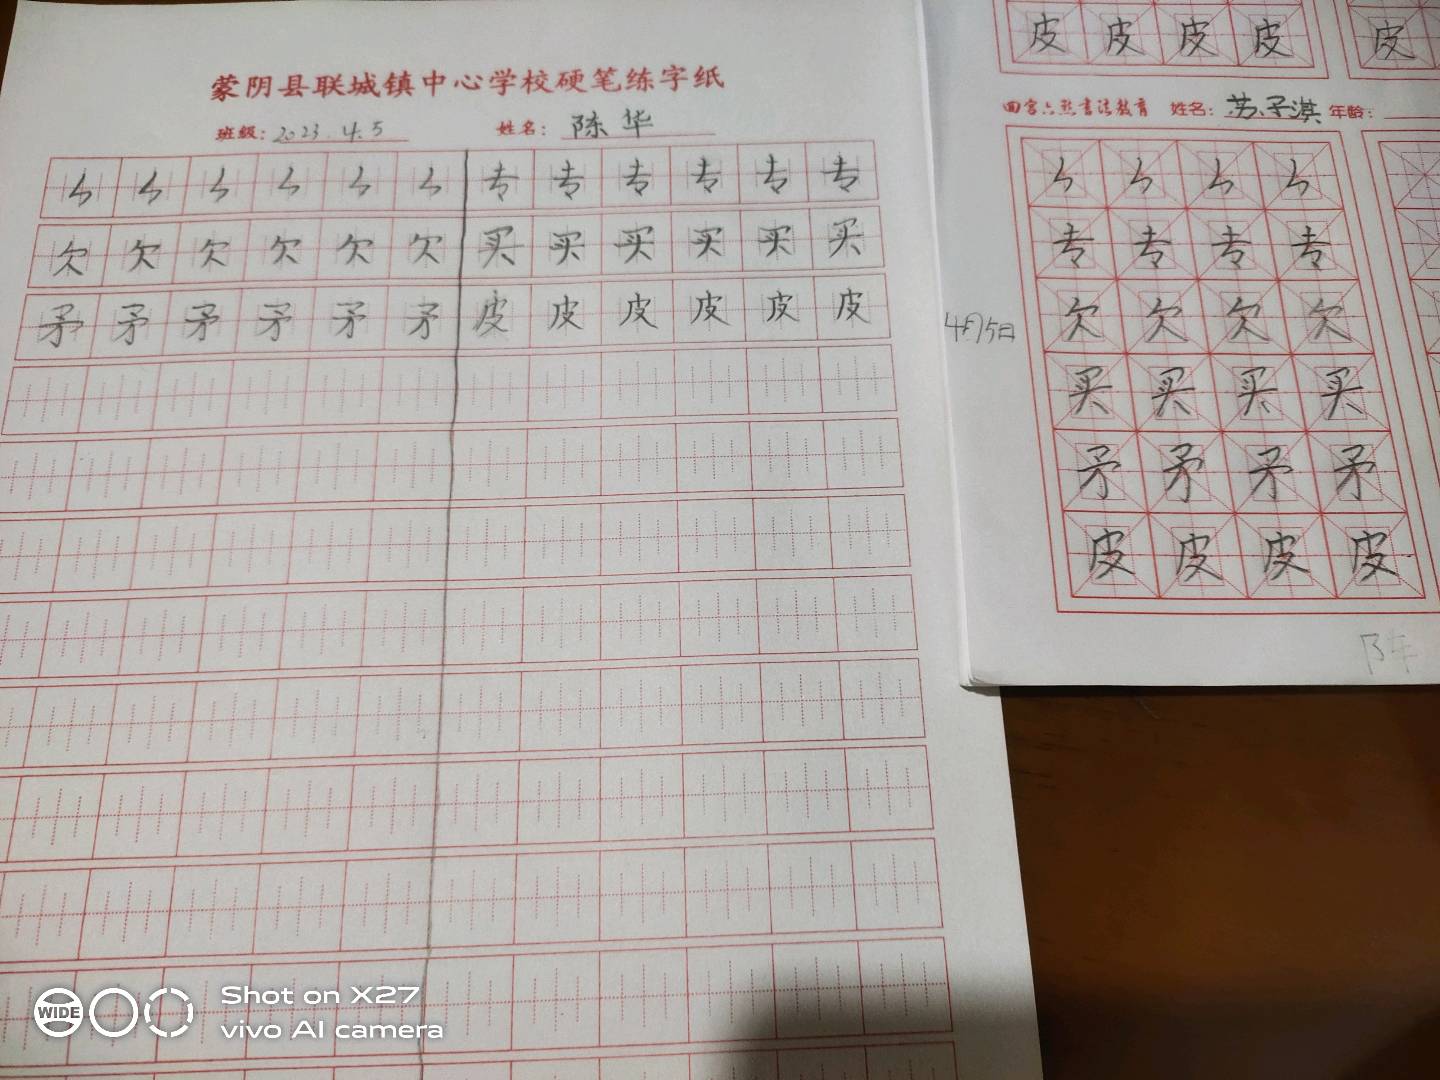 蒙阴县联城镇中心学校硬笔练字纸
班级: 2023.4.5 姓名: 陈华
专 专 专 专 专 专
欠 欠 欠 欠 欠 欠 买 买 买 买 买 买
矛 矛 矛 矛 矛 矛 皮 皮 皮 皮 皮 皮
皮 皮 皮 皮 皮
回宫六点书法教育 姓名: 苏子淇 年龄:
专 专 专 专
欠 欠 欠 欠
4月5日
买 买 买 买
矛 矛 矛 矛
皮 皮 皮 皮
WIDE
Shot on X27
vivo AI camera